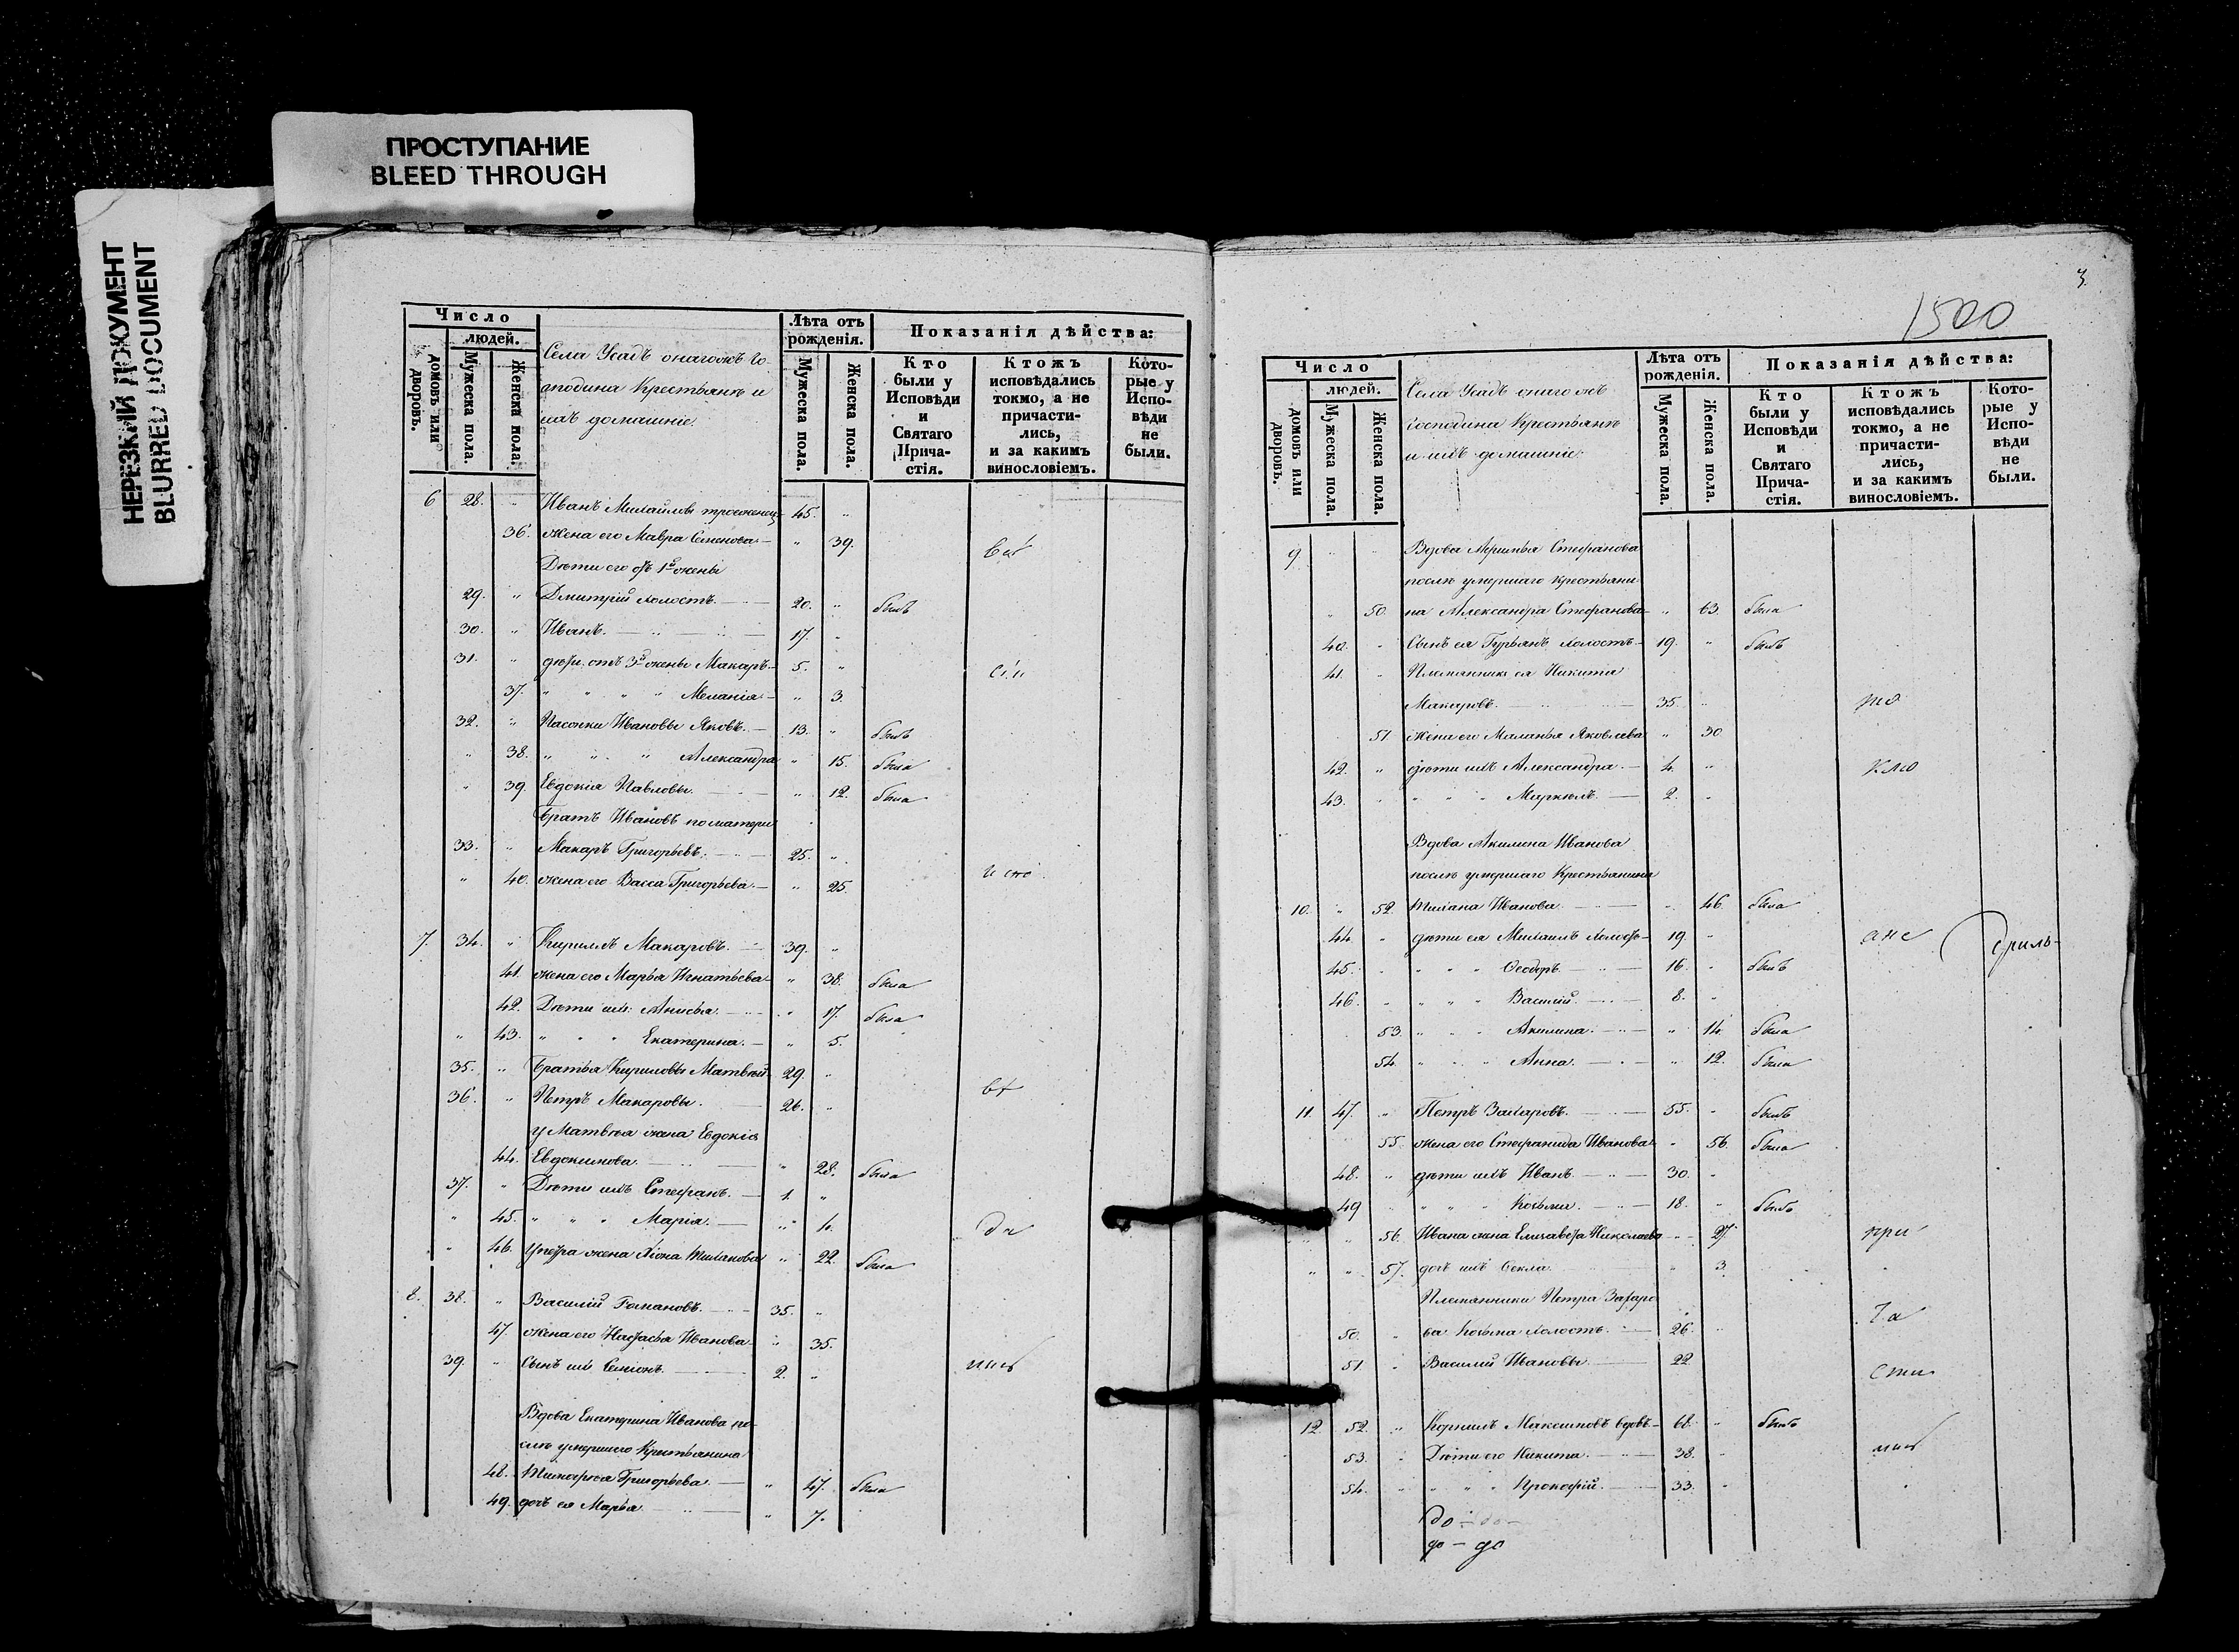 ПРОСТУПАНИЕ
BLEED THROUGH
НЕРЕЗКИЙ ДОКУМЕНТ
BLURRED DOCUMENT
Число
людей.
домовъ или дворовъ.
Мужеска пола.
Женска пола.
Села Усадъ онагожъ Го-
сподина Крестьянѣ и
ихъ домашніе.
Лѣта отъ рожденія.
Мужеска пола.
Женска пола.
Показанія дѣйства:
Кто были у Исповѣди и Святаго Прича-стія.
Ктожъ исповѣдались токмо, а не причасти-лись, и за какимъ винословіемъ.
Кото-рые у Испо-вѣди не были.
6 28. " Иванъ Михайловъ троеженец- 45. "
36. жена его Мавра Семенова — " 39.
Дѣти его отъ 1й жены
29. " Дмитрій холостъ. — 20. " былъ
30. " Иванъ. — 17. "
31. " дѣти отъ 3й жены Макаръ. — 5. "
37. " " " " Меланія. — " 3.
32. " Пасонки Ивановы Яковъ. — 13. " былъ
" 38. " " " Александра " 15. была
" 39. Евдокія Павловы. — " 12. была
Братъ Ивановъ по матери
33. " Макаръ Григорьевъ. — 25. "
" 40. жена его Васса Григорьева. — " 25.
7. 34. " Кириллъ Макаровъ. 39. "
41. жена его Марья Игнатьева " 38. была
42. Дѣти ихъ: Анисья. — " 17. была
" 43. " " " Екатерина. — " 5.
35. " Братья Кириловы Матвѣй 29. "
36. " Петръ Макаровы. 26. "
у Матвѣя жена Евдокія
44. Евдокимова. — " 28. была
37. " Дѣти ихъ Стефанъ. — 1. "
" 45. " " " Марія. — " 4.
да
" 46. у Петра жена Хіона Тиханова " 22. была
8. 38. " Василій Романовъ. — 35. "
47. жена его Настасья Иванова " 35.
39. " Сынъ ихъ Семіонъ. 2. "
Вдова Екатерина Иванова по-
слѣ умершаго Крестьянина
48. Тимофея Григорьева. — " 47. была
49. дочь ея Марья. " 7.
3.
1500
Число
людей.
домовъ или дворовъ.
Мужеска пола.
Женска пола.
Села Усадъ онагожъ
Господина Крестьянѣ
и ихъ домашніе.
Лѣта отъ рожденія.
Мужеска пола.
Женска пола.
Показанія дѣйства:
Кто были у Исповѣди и Святаго Прича-стія.
Ктожъ исповѣдались токмо, а не причасти-лись, и за какимъ винословіемъ.
Кото-рые у Испо-вѣди не были.
9. " " Вдова Афимья Стефанова
послѣ умершаго крестьяни
" 50. на Александра Стефанова " 63. была
40. " Сынъ ея Гурьянъ холостъ. 19. " былъ
41. " Племянникъ ея Никита
Макаровъ. — 35. "
51. жена его Маланья Яковлева " 30.
42. " дѣти ихъ Александра. — 4. "
43. " " " Маркелъ. — 2. "
Вдова Акилина Иванова
послѣ умершаго Крестьянина
10. " 52. Тихана Иванова. — " 46. была
44. " дѣти ея Михаилъ холостъ 19. "
45. " " " Феодоръ. — 16. " былъ
46. " " " Василій. — 8. "
53. " " " Акилина. — " 14. была
54. " " " Анна. — " 12. была
11. 47. " Петръ Захаровъ. — 55. " былъ
55. жена его Стефанида Иванова " 56. была
48. " дѣти ихъ Иванъ. — 30. "
49 " " " Козьма. — 18. " былъ
56. Ивана жена Елисавета Николаева 27. при
" " 57. дочь ихъ Фекла. " 3.
Племянники Петра Захаро
50. " ва Козьма холостъ. 26. ча
51. " Василій Ивановы. 22 сти
12. 52. " Корнилъ Максимовъ вдовъ 68. " былъ
53. Дѣти его Никита. — 38. "
54. " " " Прокофій. — 33. "
до
до — до